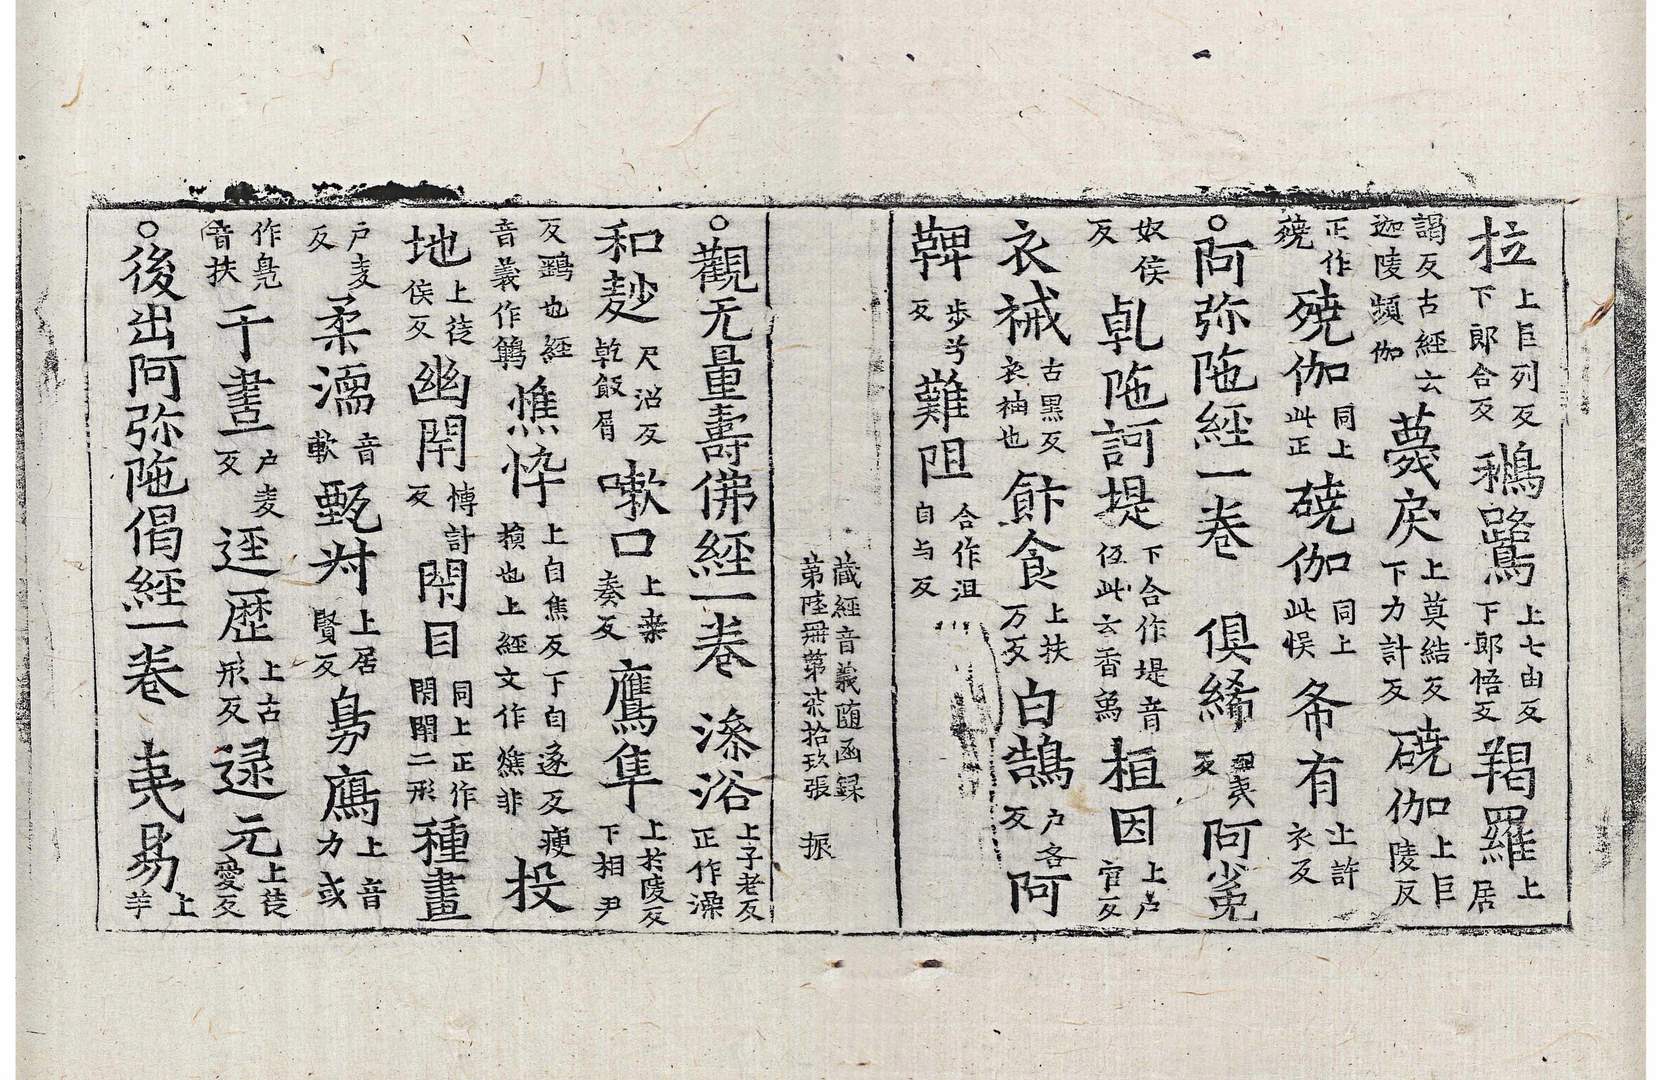 拉上巨列反下郎合反鵝鷺上七由反下郎悟反羯羅上居
謁反古經云迦陵頻伽蔑戾上莫結反下力計反䃈伽上巨陵反
正作殑殑伽同上此正䃈伽同上此悮希有上許衣反
○阿弥陁經一卷 俱絺丑夷反阿㝹
奴侯反軋陁訶堤下合作堤音伍此云香為植因上户官反
衣裓古黒反衣袖也飰食上扶万反白鵠户各反阿
鞞歩兮反難阻合作沮自与反
藏經音義随函録第陸冊第柒拾玖張 振
○觀无量壽佛經一卷 澡浴上子老反正作澡
和麨尺沼反乾飯屑嗽口上桒奏反鷹隼上於陵反下相尹
反鷂也經音義作鵤憔悴上自焦反下自遂反瘦㾕也上經文作燋非投
地上徒侯反幽閇博計反閇目同上正作閉閇二形種晝
户麦反柔濡音軟甄叔上居賢反鳬鴈上音力或
作鳧音扶千畫户麦反逕歷上古形反逯元上徒愛反
○後出阿弥陁偈經一卷 夷易上羊